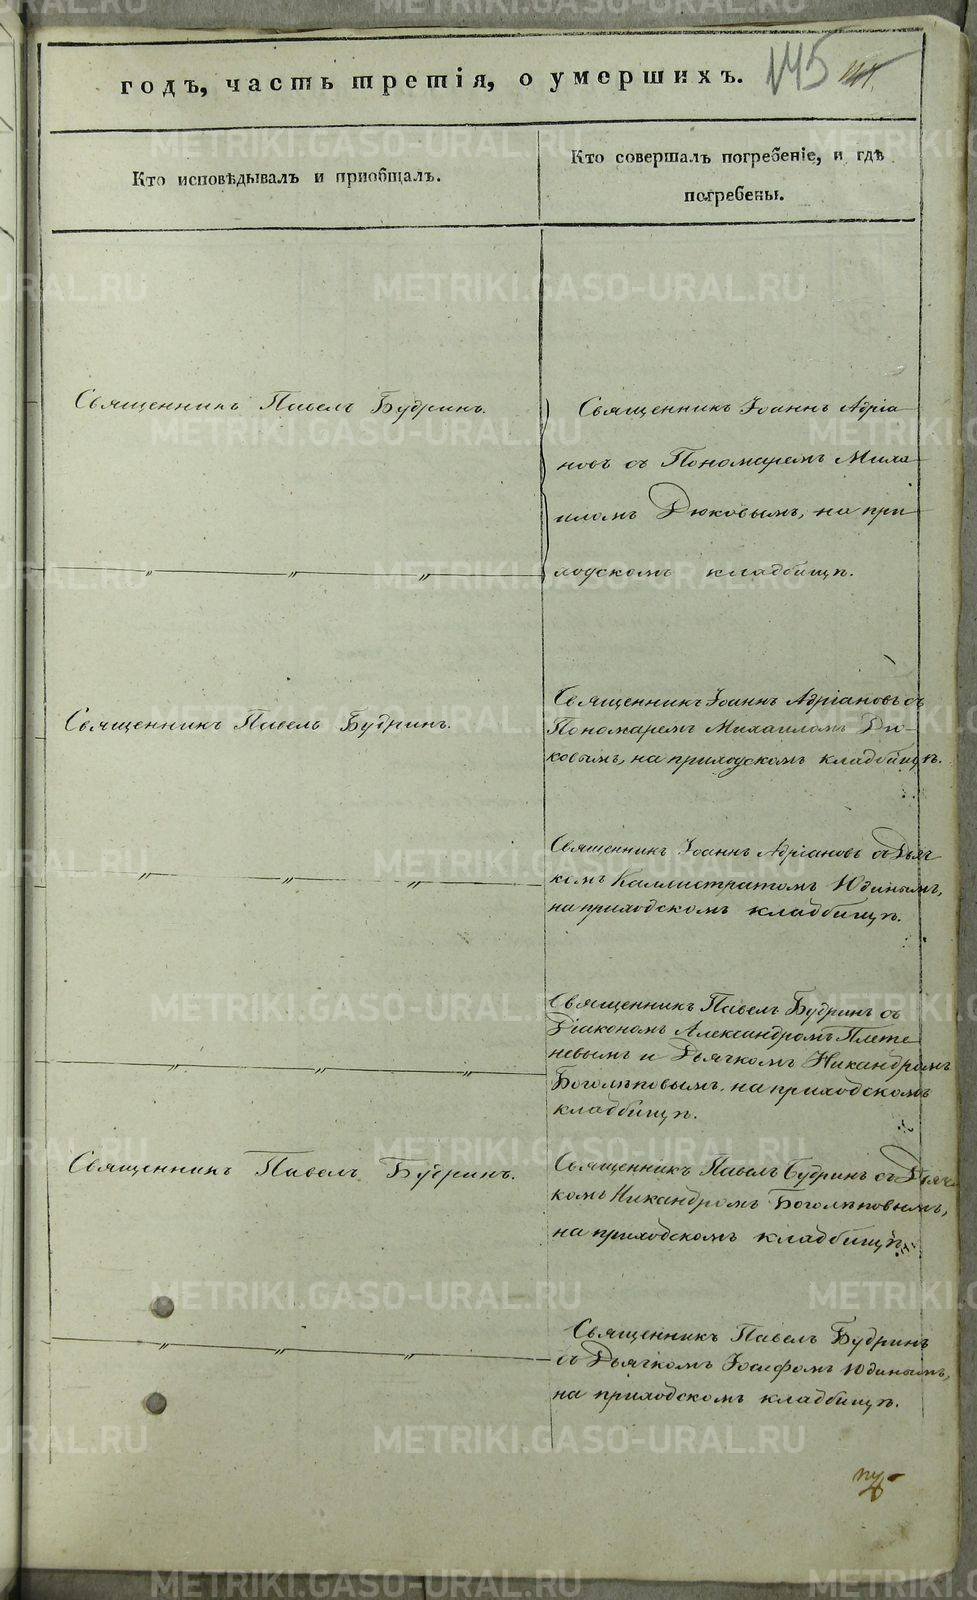 годъ, часть третія, о умершихъ.
145
Кто исповѣдывалъ и пріобщалъ.
Кто совершалъ погребеніе, и гдѣ
погребены.
Священникъ Павелъ Будринъ.
Священникъ Іоаннъ Адріа
новъ съ Пономаремъ Миха
иломъ Дюковымъ, на при
ходскомъ кладбищѣ.
— „ — „ — „ —
Священникъ Павелъ Будринъ.
Священникъ Іоаннъ Адріановъ съ
Пономаремъ Михаиломъ Дю-
ковымъ, на приходскомъ кладбищѣ.
— „ — „ — „ —
Священникъ Іоаннъ Адріановъ съ Дьяч
комъ Каллистратомъ Юдинымъ,
на приходскомъ кладбищѣ.
— „ — „ — „ —
Священникъ Павелъ Будринъ съ
Діакономъ Александромъ Плете
невымъ и Дьячкомъ Никандромъ
Боголѣповымъ, на приходскомъ
кладбищѣ.
Священникъ Павелъ Будринъ.
Священникъ Павелъ Будринъ съ Дьяч
комъ Никандромъ Боголѣповымъ,
на приходскомъ кладбищѣ.
— „ — „ — „ —
Священникъ Павелъ Будринъ
съ Дьячкомъ Іосифомъ Юдинымъ,
на приходскомъ кладбищѣ.
METRIKI.GASO-URAL.RU